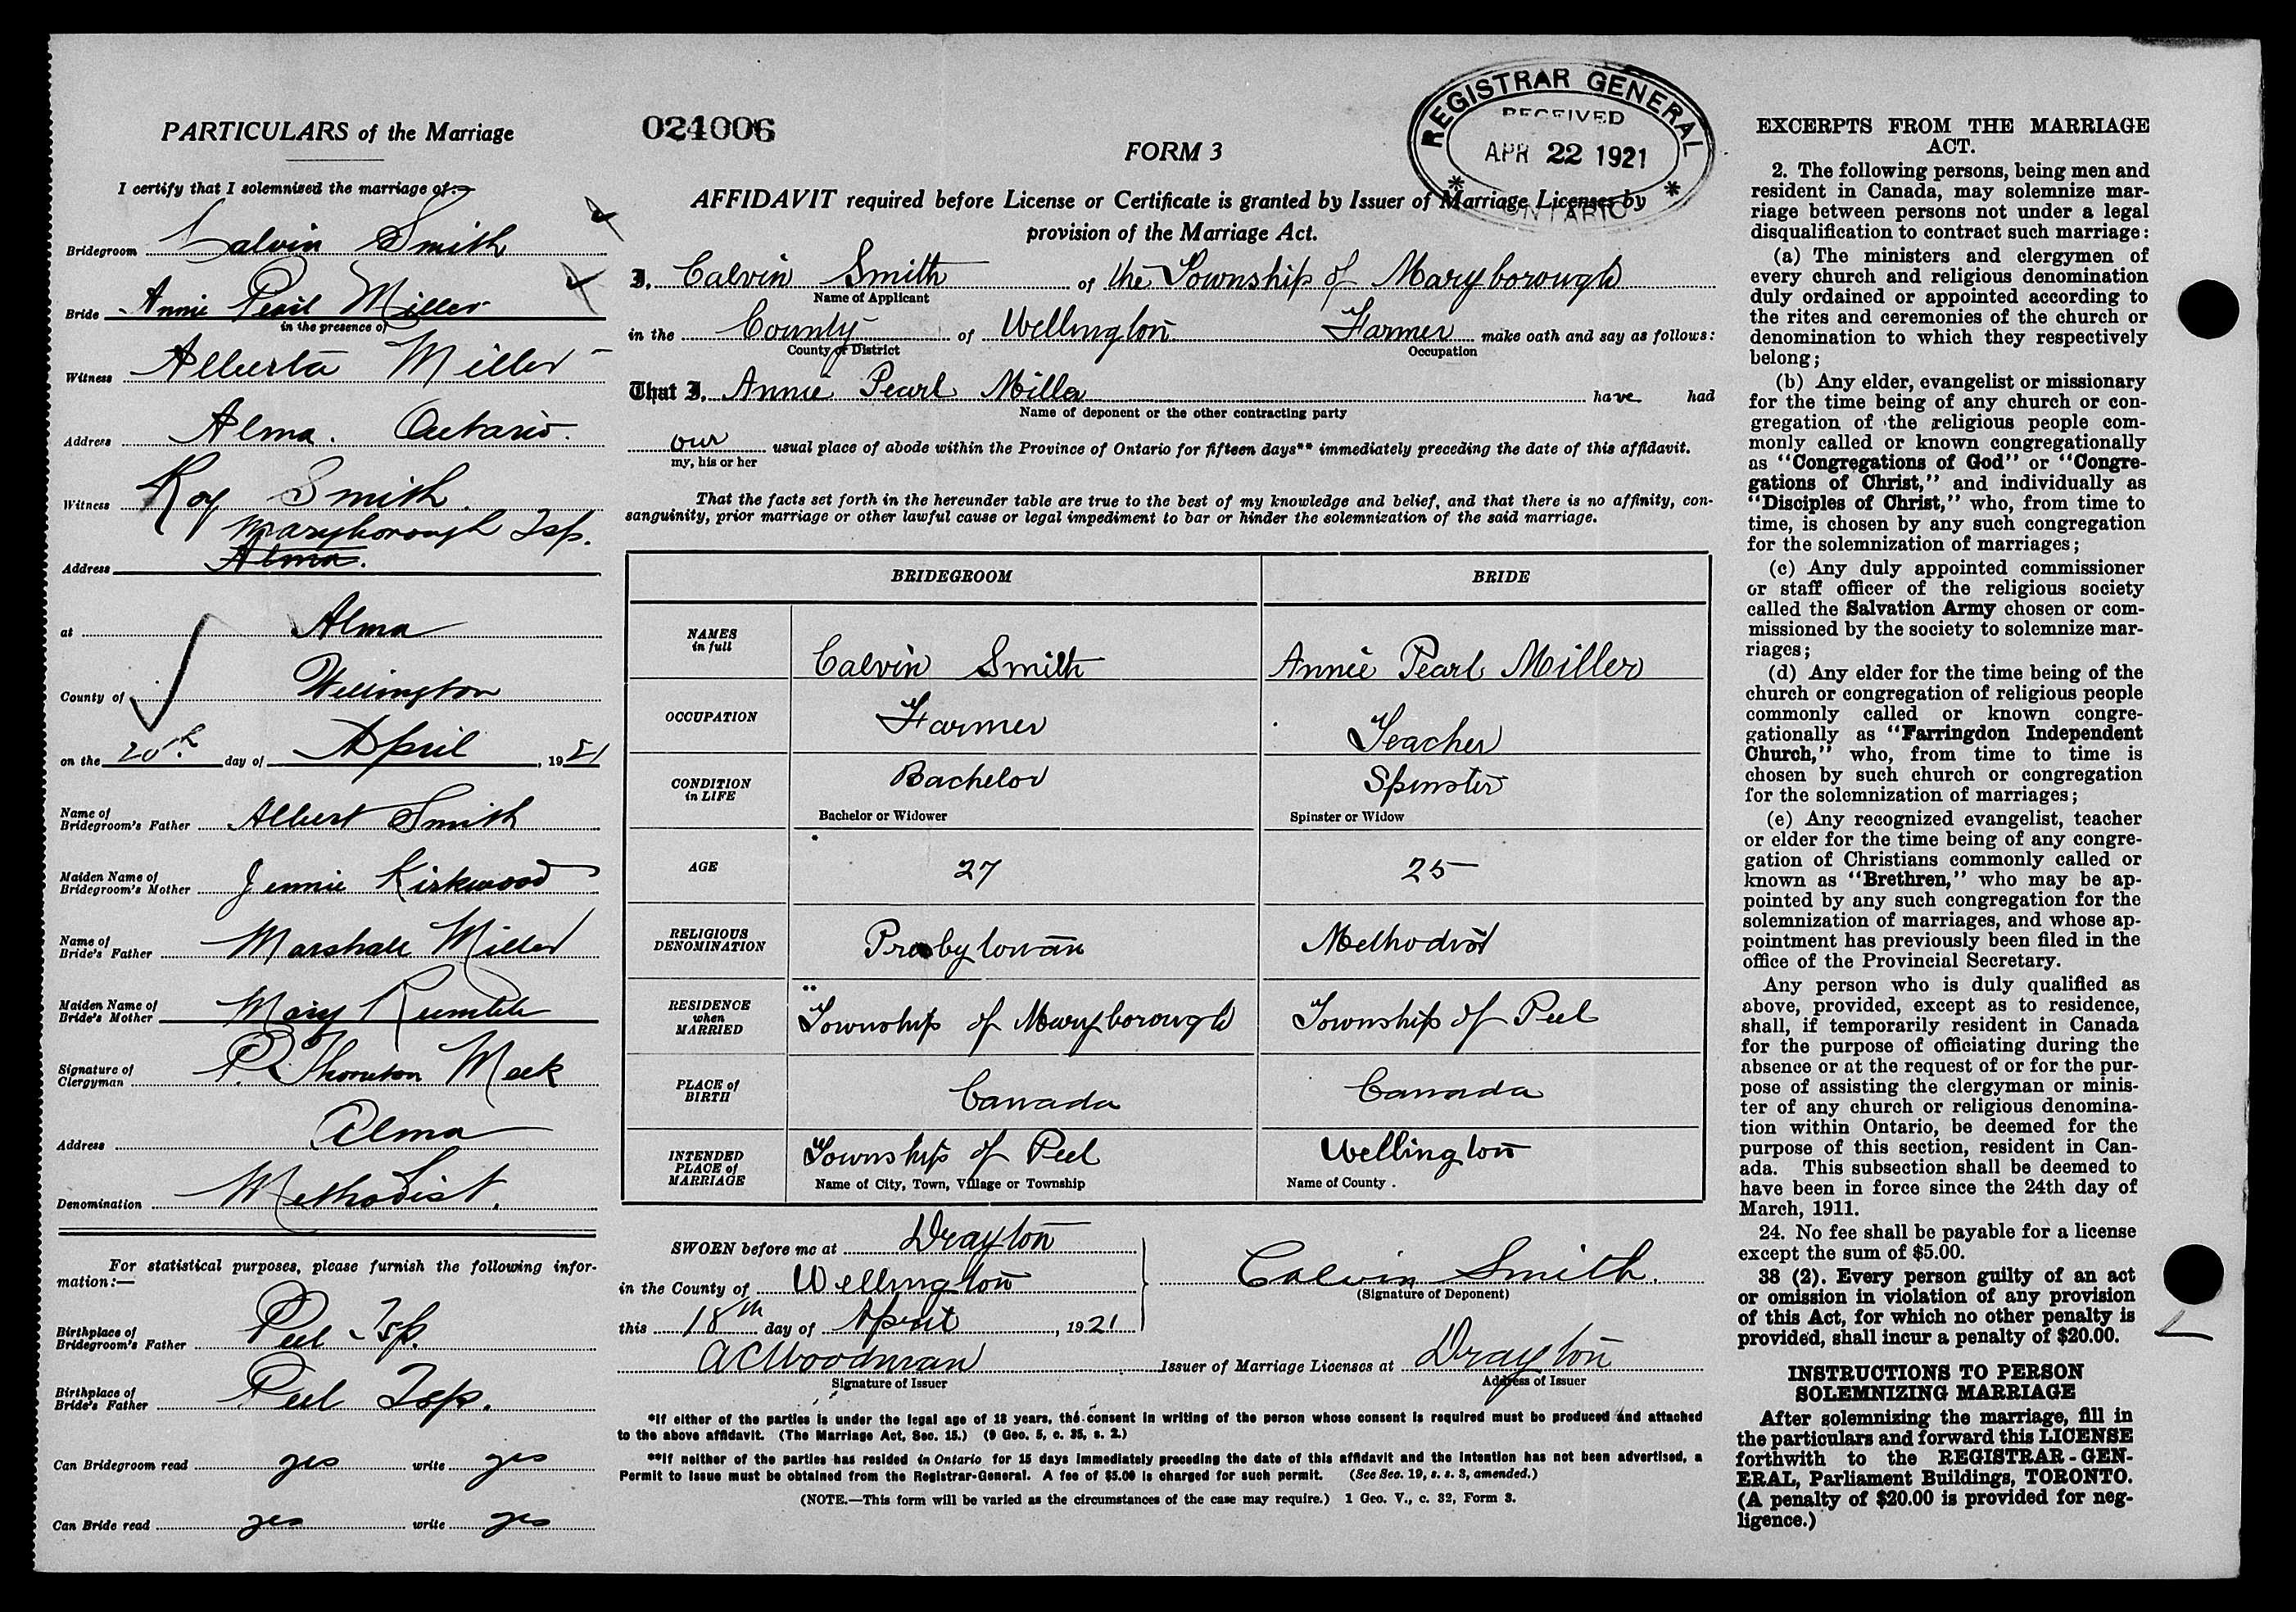 PARTICULARS of the Marriage
I certify that I solemnized the marriage of:—
Bridegroom Calvin Smith
Bride Annie Pearl Miller
in the presence of
Witness Alberta Miller
Address Alma. Ontario.
Witness Roy Smith.
Maryborough Tsp.
Address Alma.
at Alma
County of Wellington
on the 20th day of April, 1921
Name of
Bridegroom's Father Albert Smith
Maiden Name of
Bridegroom's Mother Jennie Kirkwood
Name of
Bride's Father Marshall Miller
Maiden Name of
Bride's Mother Mary Rumble
Signature of
Clergyman P. Thornton Meek
Address Alma
Denomination Methodist.
For statistical purposes, please furnish the following infor-
mation:—
Birthplace of
Bridegroom's Father Peel Tsp.
Birthplace of
Bride's Father Peel Tsp.
Can Bridegroom read yes write yes
Can Bride read yes write yes
024006
REGISTRAR GENERAL
RECEIVED
APR 22 1921
ONTARIO
FORM 3
AFFIDAVIT required before License or Certificate is granted by Issuer of Marriage Licenses by
provision of the Marriage Act.
I, Calvin Smith of the Township of Maryborough
Name of Applicant
in the County of Wellington Farmer make oath and say as follows:
County or District Occupation
That I, Annie Pearl Miller have had
Name of deponent or the other contracting party
our usual place of abode within the Province of Ontario for fifteen days** immediately preceding the date of this affidavit.
my, his or her
That the facts set forth in the hereunder table are true to the best of my knowledge and belief, and that there is no affinity, con-
sanguinity, prior marriage or other lawful cause or legal impediment to bar or hinder the solemnization of the said marriage.
BRIDEGROOM BRIDE
NAMES
in full Calvin Smith Annie Pearl Miller
OCCUPATION Farmer Teacher
CONDITION
in LIFE Bachelor Spinster
Bachelor or Widower Spinster or Widow
AGE 27 25
RELIGIOUS
DENOMINATION Presbyterian Methodist
RESIDENCE
when
MARRIED Township of Maryborough Township of Peel
PLACE of
BIRTH Canada Canada
INTENDED
PLACE of
MARRIAGE Township of Peel Wellington
Name of City, Town, Village or Township Name of County.
SWORN before me at Drayton
in the County of Wellington
this 18th day of April, 1921
Calvin Smith.
(Signature of Deponent)
A C Woodman Issuer of Marriage Licenses at Drayton
Signature of Issuer Address of Issuer
*If either of the parties is under the legal age of 18 years, the consent in writing of the person whose consent is required must be produced and attached
to the above affidavit. (The Marriage Act, Sec. 15.) (9 Geo. 5, c. 35, s. 2.)
**If neither of the parties has resided in Ontario for 15 days immediately preceding the date of this affidavit and the intention has not been advertised, a
Permit to issue must be obtained from the Registrar-General. A fee of $5.00 is charged for such permit. (See Sec. 19, s. s. 3, amended.)
(NOTE.—This form will be varied as the circumstances of the case may require.) 1 Geo. V., c. 32, Form 3.
EXCERPTS FROM THE MARRIAGE
ACT.
2. The following persons, being men and
resident in Canada, may solemnize mar-
riage between persons not under a legal
disqualification to contract such marriage:
(a) The ministers and clergymen of
every church and religious denomination
duly ordained or appointed according to
the rites and ceremonies of the church or
denomination to which they respectively
belong;
(b) Any elder, evangelist or missionary
for the time being of any church or con-
gregation of the religious people com-
monly called or known congregationally
as "Congregations of God" or "Congre-
gations of Christ," and individually as
"Disciples of Christ," who, from time to
time, is chosen by any such congregation
for the solemnization of marriages;
(c) Any duly appointed commissioner
or staff officer of the religious society
called the Salvation Army chosen or com-
missioned by the society to solemnize mar-
riages;
(d) Any elder for the time being of the
church or congregation of religious people
commonly called or known congre-
gationally as "Farringdon Independent
Church," who, from time to time is
chosen by such church or congregation
for the solemnization of marriages;
(e) Any recognized evangelist, teacher
or elder for the time being of any congre-
gation of Christians commonly called or
known as "Brethren," who may be ap-
pointed by any such congregation for the
solemnization of marriages, and whose ap-
pointment has previously been filed in the
office of the Provincial Secretary.
Any person who is duly qualified as
above, provided, except as to residence,
shall, if temporarily resident in Canada
for the purpose of officiating during the
absence or at the request of or for the pur-
pose of assisting the clergyman or minis-
ter of any church or religious denomina-
tion within Ontario, be deemed for the
purpose of this section, resident in Can-
ada. This subsection shall be deemed to
have been in force since the 24th day of
March, 1911.
24. No fee shall be payable for a license
except the sum of $5.00.
38 (2). Every person guilty of an act
or omission in violation of any provision
of this Act, for which no other penalty is
provided, shall incur a penalty of $20.00.
INSTRUCTIONS TO PERSON
SOLEMNIZING MARRIAGE
After solemnizing the marriage, fill in
the particulars and forward this LICENSE
forthwith to the REGISTRAR-GEN-
ERAL, Parliament Buildings, TORONTO.
(A penalty of $20.00 is provided for neg-
ligence.)